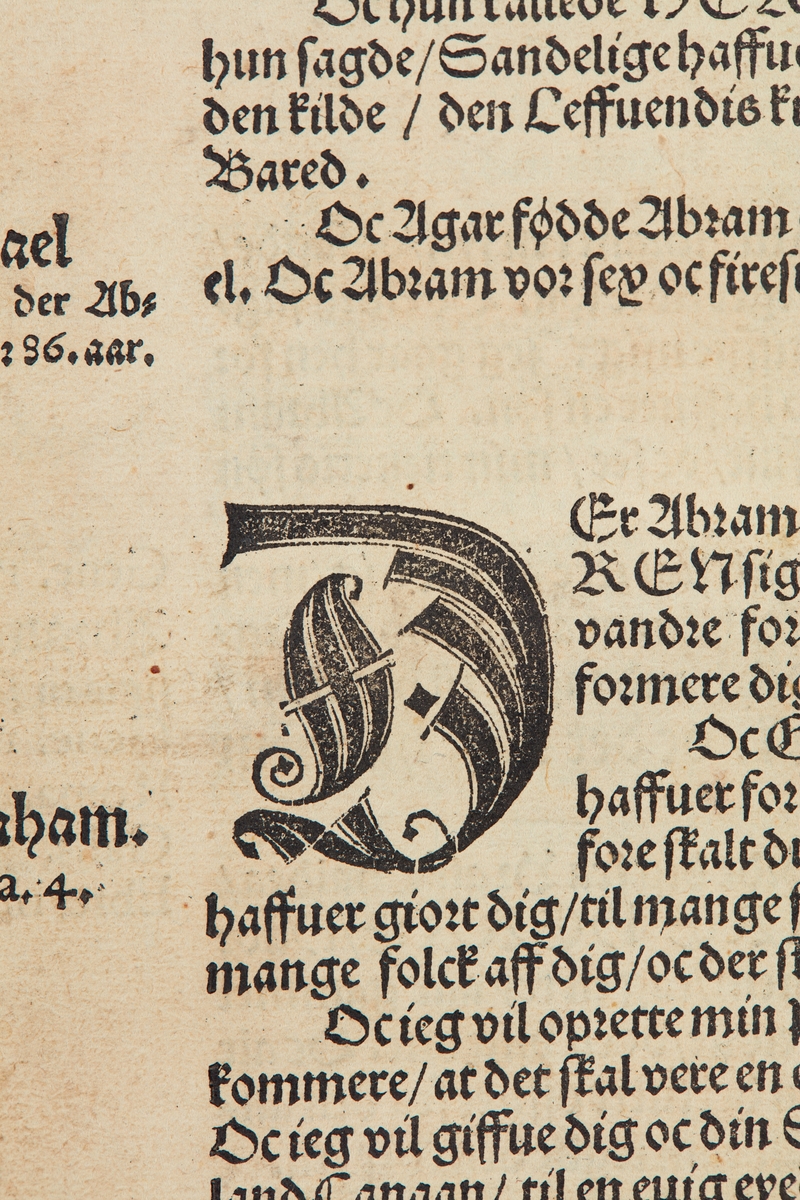 Oc hun kallede
hun sagde/ Sandelige haffue
den kilde / den Leffuendis
Bared.
Oc Agar fødde Abram
el. Oc Abram vor sex oc firesi
ael
der Ab⸗
86. aar.
DEr Abram
REN sig
vandre for
formere dig
Oc
haffuer for
fore skalt du
haffuer giort dig/ til mange
mange folck aff dig/ oc der
Oc ieg vil oprette min
kommere/ at det skal vere en
Oc ieg vil giffue dig oc din
land Canaan/ til en euig
aham.
a. 4.